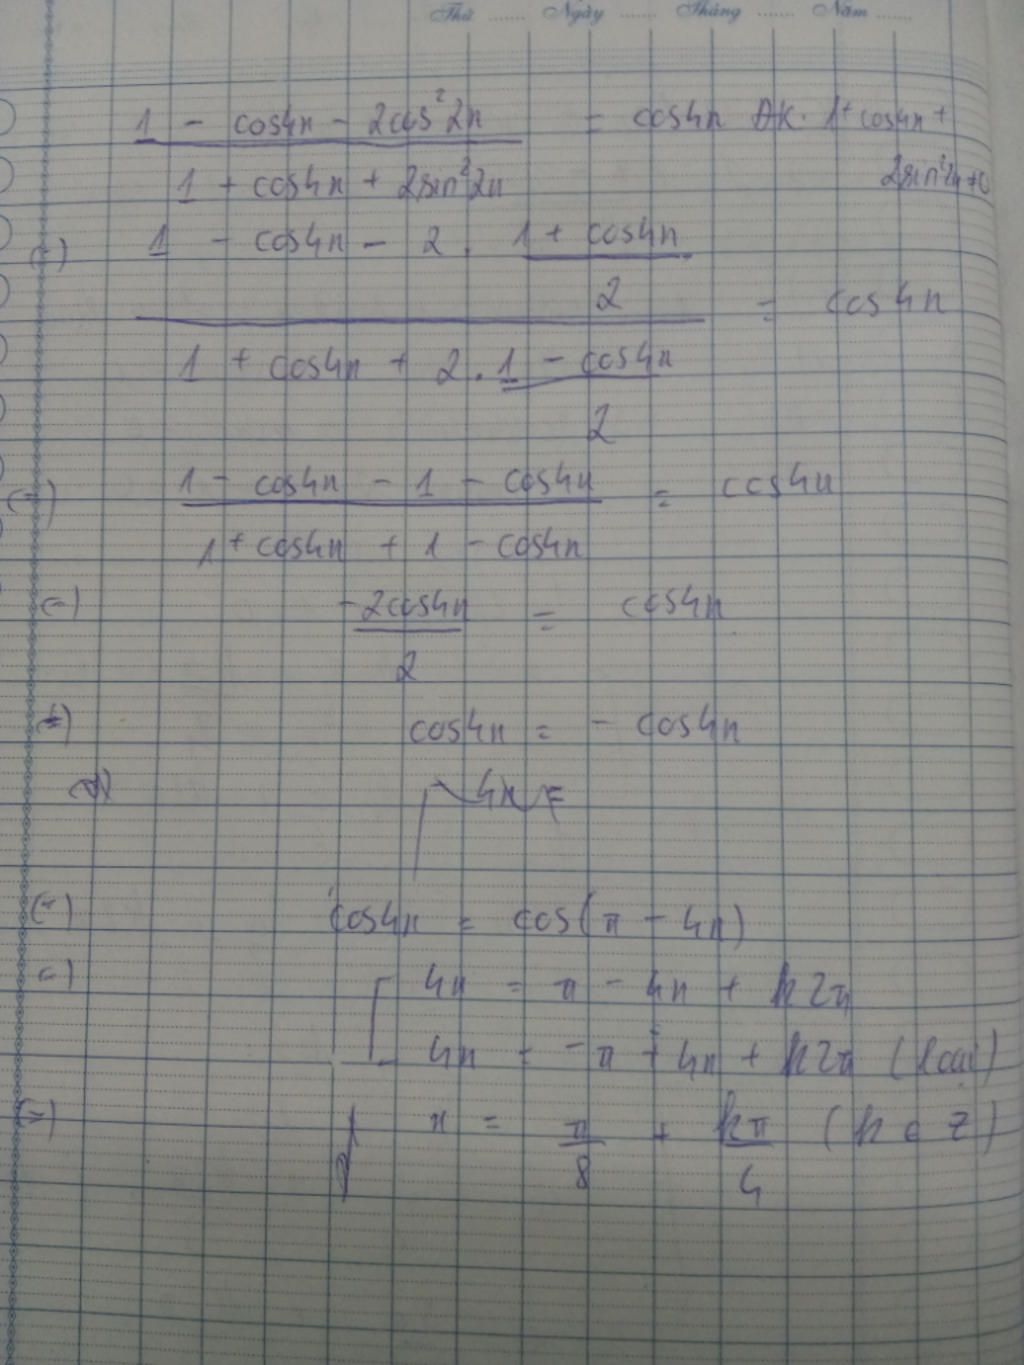 Thứ ...... Ngày ...... Tháng ...... Năm ......
1 - cos4x - 2cos²2x = cos4x ĐK: 1 + cos4x +
1 + cos4x + 2sin²2x 2sin²2x ≠ 0
(=) 1 - cos4x - 2 . 1 + cos4x
2 = cos4x
1 + cos4x + 2 . 1 - cos4x
2
(=) 1 - cos4x - 1 - cos4x = cos4x
1 + cos4x + 1 - cos4x
(=) -2cos4x = cos4x
2
(=) cos4x = - cos4x
4x =
(=) cos4x = cos(π - 4x)
(=) 4x = π - 4x + k2π
4x = -π + 4x + k2π (loại)
(=) x = π + kπ (k ∈ Z)
8 4